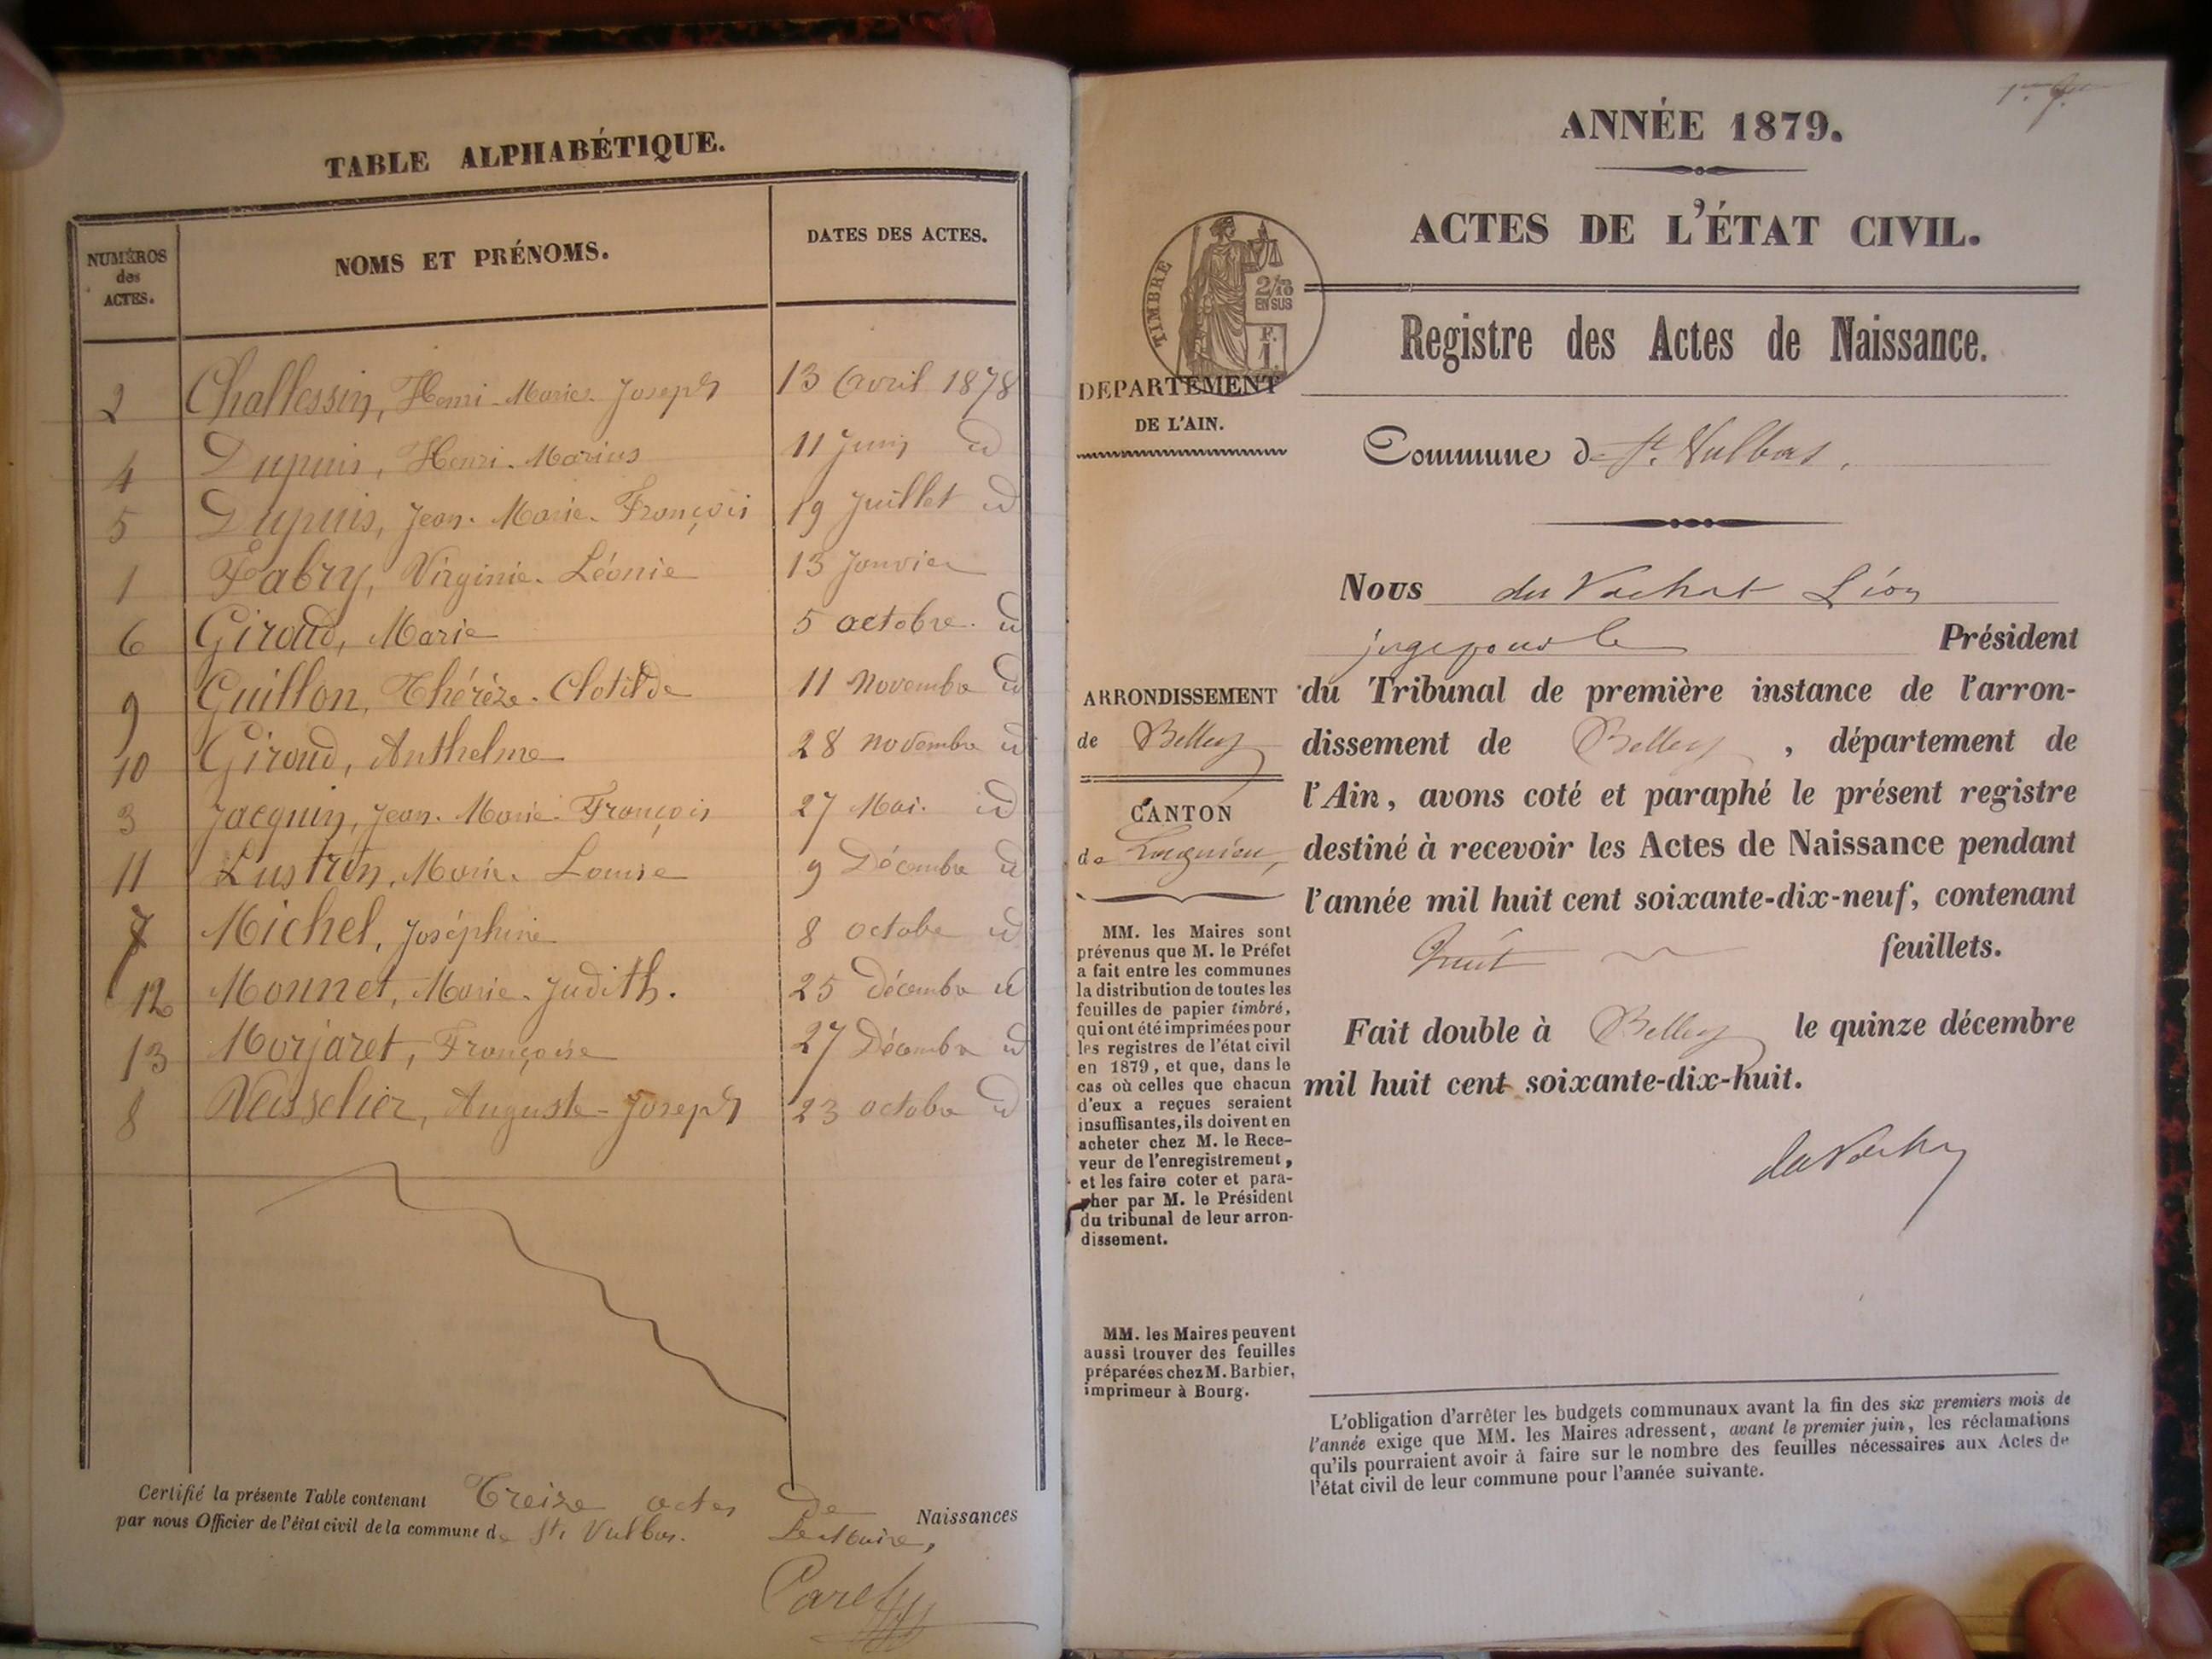 TABLE ALPHABÉTIQUE.
NUMÉROS
des
ACTES.
NOMS ET PRÉNOMS.
DATES DES ACTES.
2 Challessin, Henri-Marie-Joseph 13 Avril 1878
4 Dupuis, Henri-Marius 11 Juin id
5 Dupuis, Jean-Marie-François 19 Juillet id
1 Fabry, Virginie-Léonie 13 Janvier
6 Giroud, Marie 5 octobre id
9 Guillon, Thérèze-Clotilde 11 Novembre id
10 Giroud, Anthelme 28 novembre id
3 Jacquin, Jean-Marie-François 27 Mai id
11 Lustrin, Marie-Louise 9 Décembre id
7 Michel, Joséphine 8 octobre id
12 Monnet, Marie-Judith. 25 Décembre id
13 Morjaret, Françoise 27 Décembre id
8 Veisselier, Auguste-Joseph 23 octobre id
Certifié la présente Table contenant Treize actes de Naissances
par nous Officier de l'état civil de la commune de St. Vulbas. Le Maire,
ANNÉE 1879.
ACTES DE L'ÉTAT CIVIL.
TIMBRE
2/10
EN SUS
F.
1.
Registre des Actes de Naissance.
DEPARTEMENT
DE L'AIN.
Commune de St. Vulbas.
Nous du Vachat Léon
juge pour le Président
du Tribunal de première instance de l'arron-
dissement de Belley, département de
l'Ain, avons coté et paraphé le présent registre
destiné à recevoir les Actes de Naissance pendant
l'année mil huit cent soixante-dix-neuf, contenant
huit feuillets.
Fait double à Belley le quinze décembre
mil huit cent soixante-dix-huit.
du Vachat
ARRONDISSEMENT
de Belley
CANTON
de Lagnieu,
MM. les Maires sont
prévenus que M. le Préfet
a fait entre les communes
la distribution de toutes les
feuilles de papier timbré,
qui ont été imprimées pour
les registres de l'état civil
en 1879, et que, dans le
cas où celles que chacun
d'eux a reçues seraient
insuffisantes, ils doivent en
acheter chez M. le Rece-
veur de l'enregistrement,
et les faire coter et para-
pher par M. le Président
du tribunal de leur arron-
dissement.
MM. les Maires peuvent
aussi trouver des feuilles
préparées chez M. Barbier,
imprimeur à Bourg.
L'obligation d'arrêter les budgets communaux avant la fin des six premiers mois de
l'année exige que MM. les Maires adressent, avant le premier juin, les réclamations
qu'ils pourraient avoir à faire sur le nombre des feuilles nécessaires aux Actes de
l'état civil de leur commune pour l'année suivante.